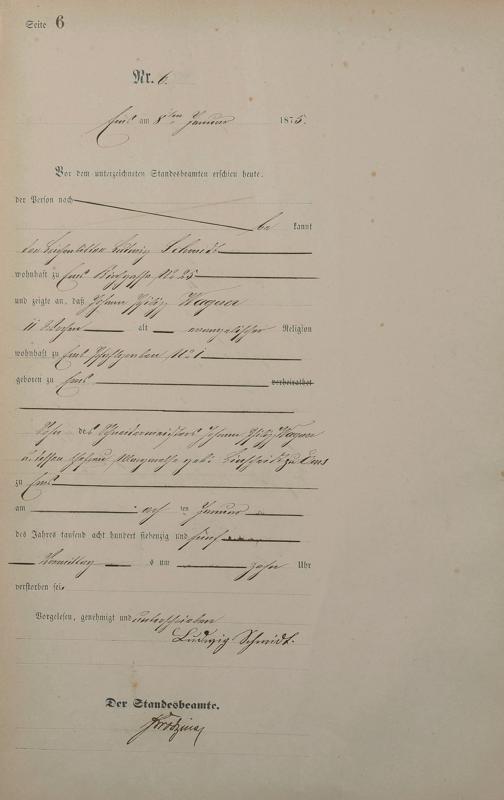 Seite 6
Nr. 6.
Ems am 8ten Januar 1875.
Vor dem unterzeichneten Standesbeamten erschien heute,
der Person nach
be kannt
der Ludwig Schmidt
wohnhaft zu Ems No 25
und zeigte an, daß Johann Philipp Wagner
11 Wochen alt evangelischer Religion
wohnhaft zu Ems No 1
geboren zu Ems verheirathet
Sohn des Schneidermeisters Johann Philipp Wagner
u. dessen Ehefrau Margarethe geb. zu Ems
zu Ems
am acht ten Januar
des Jahres tausend acht hundert siebenzig und fünf
Vormittag s um zehn Uhr
verstorben sei.
Vorgelesen, genehmigt und unterschrieben
Ludwig Schmidt.
Der Standesbeamte.